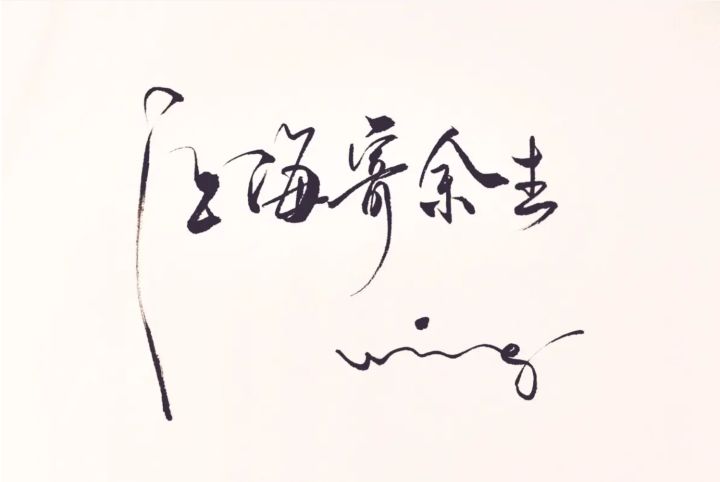 江海寄余生
wing